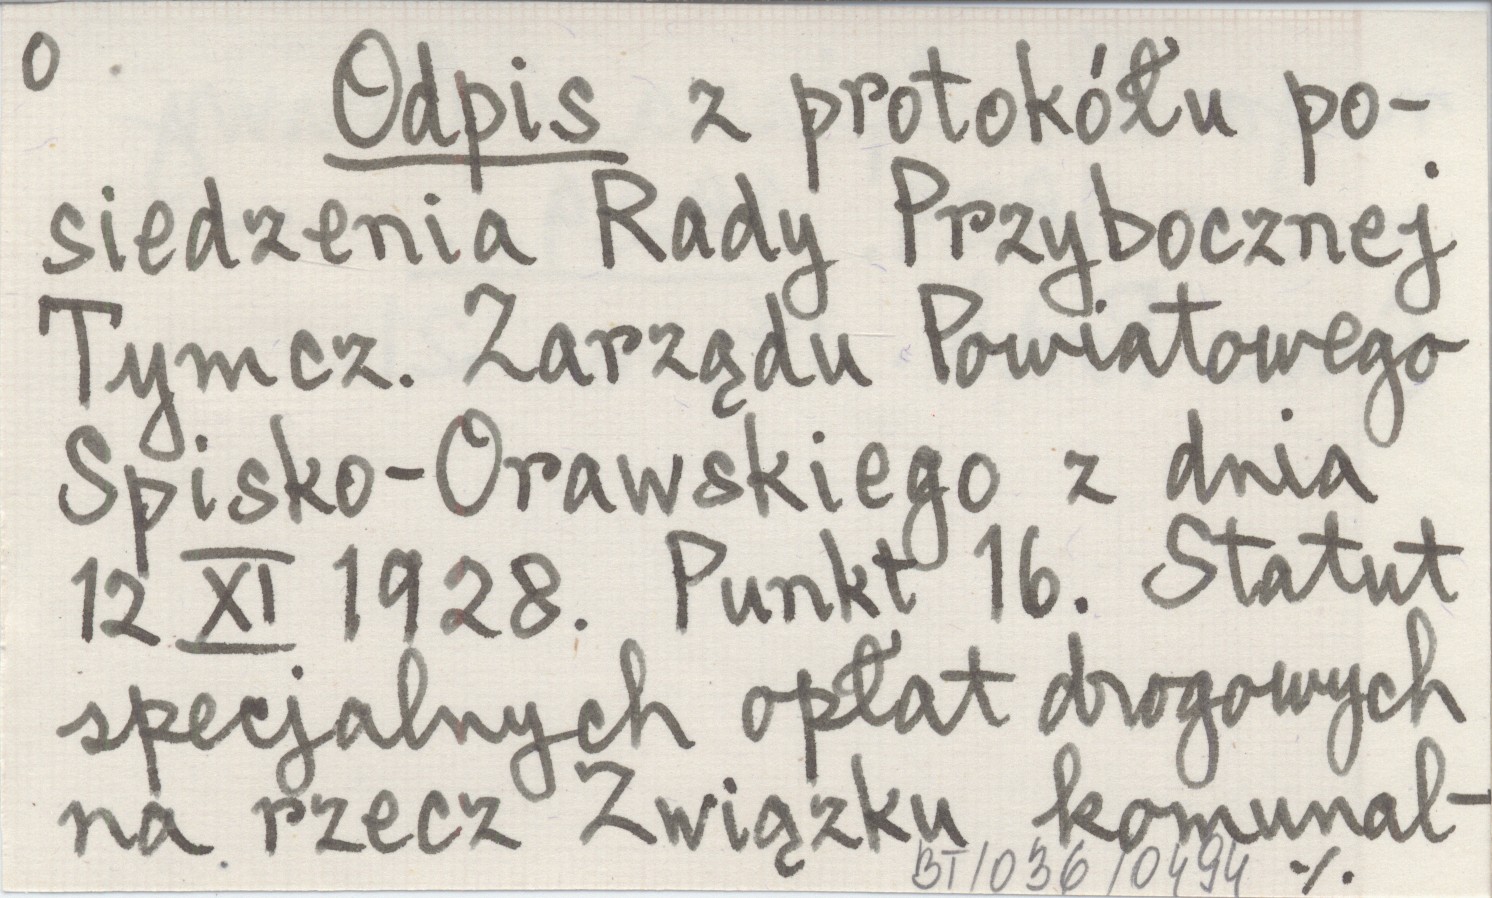 O
Odpis z protokółu po-
siedzenia Rady Przybocznej
Tymcz. Zarządu Powiatowego
Spisko-Orawskiego z dnia
12 XI 1928. Punkt 16. Statut
specjalnych opłat drogowych
na rzecz Związku komunal-
BT/036/0494 ·/.